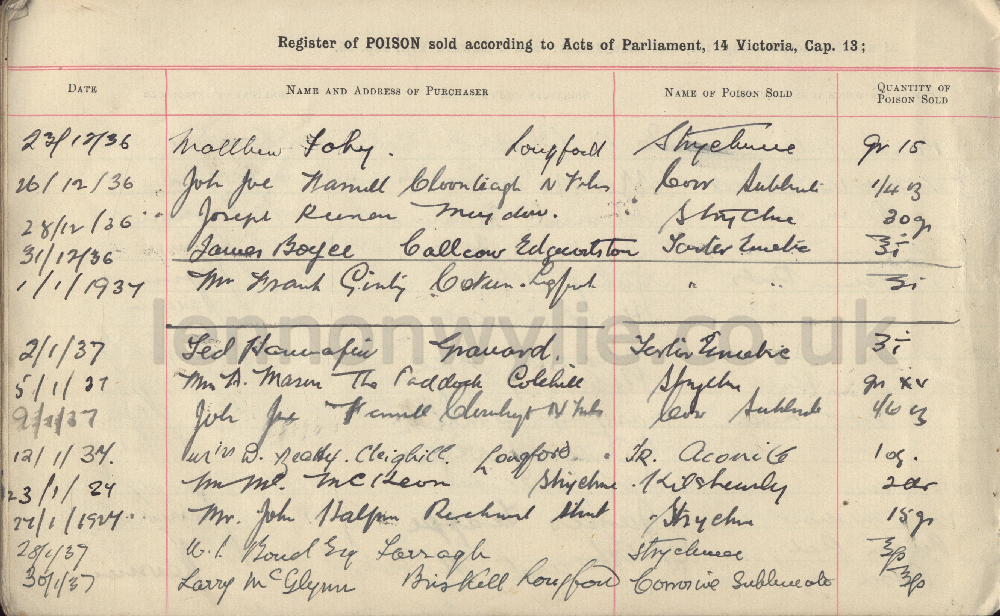 Register of POISON sold according to Acts of Parliament, 14 Victoria, Cap. 13;
DATE NAME AND ADDRESS OF PURCHASER NAME OF POISON SOLD QUANTITY OF POISON SOLD
23/12/36 Matthew Foley. Longford Strychnine gr 15
26/12/36 Joh Joe Farrell N Forbes Corr Sublimate 1/4 oz
28/12/36 Joseph Keenan Moydow. Strychine 30 gr
31/12/36 James Boyce Callcow Edgeworthstown Tarter Emetic ʒi
1/1/1937 Mr Frank Ginty Lgford " " ʒi
lennonwylie.co.uk
2/1/37 Ted Hannafin Granard. Tarter Emetic ʒi
5/1/37 Mrs A. Mason The Paddock Colehill Strychn gr xv
9/1/37 Joh Joe Farrell N Forbes Corr Sublimate 1/6 oz
12/1/37. Miss D. Beatty. Cleighill. Longford. Tr. Aconite 1 oz.
23/1/37 Mr Ml. McKeon Strychnine
27/1/1937 Mr. John Halpin Richmond Street Strychn 15 gr
28/1/37 W. Bond Esq Farragh Strychnine
30/1/37 Larry McGlynn Briskell Longford Corrosive Sublimate